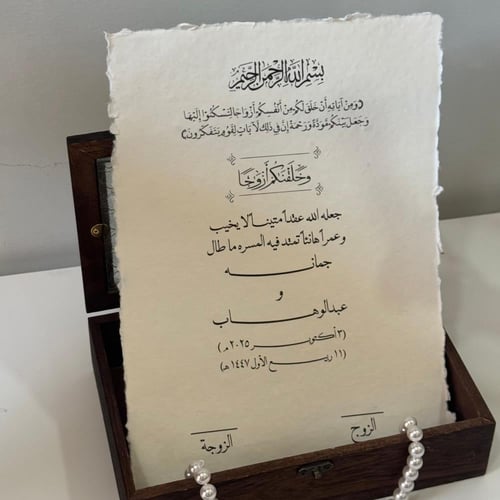 بسم الله الرحمن الرحيم
﴿ومن آياته أن خلق لكم من أنفسكم أزواجا لتسكنوا إليها
وجعل بينكم مودة ورحمة إن في ذلك لآيات لقوم يتفكرون﴾
وخلقنكم أزوٰجًا
جعله الله عقداً متيناً لا يخيب
وعمراً هانئاً تمتد فيه المسره ما طال
جمانه
و
عبدالوهاب
(٣ أكتوبر ٢٠٢٥ م)
(١١ ربيع الأول ١٤٤٧ هـ)
الزوج
الزوجة